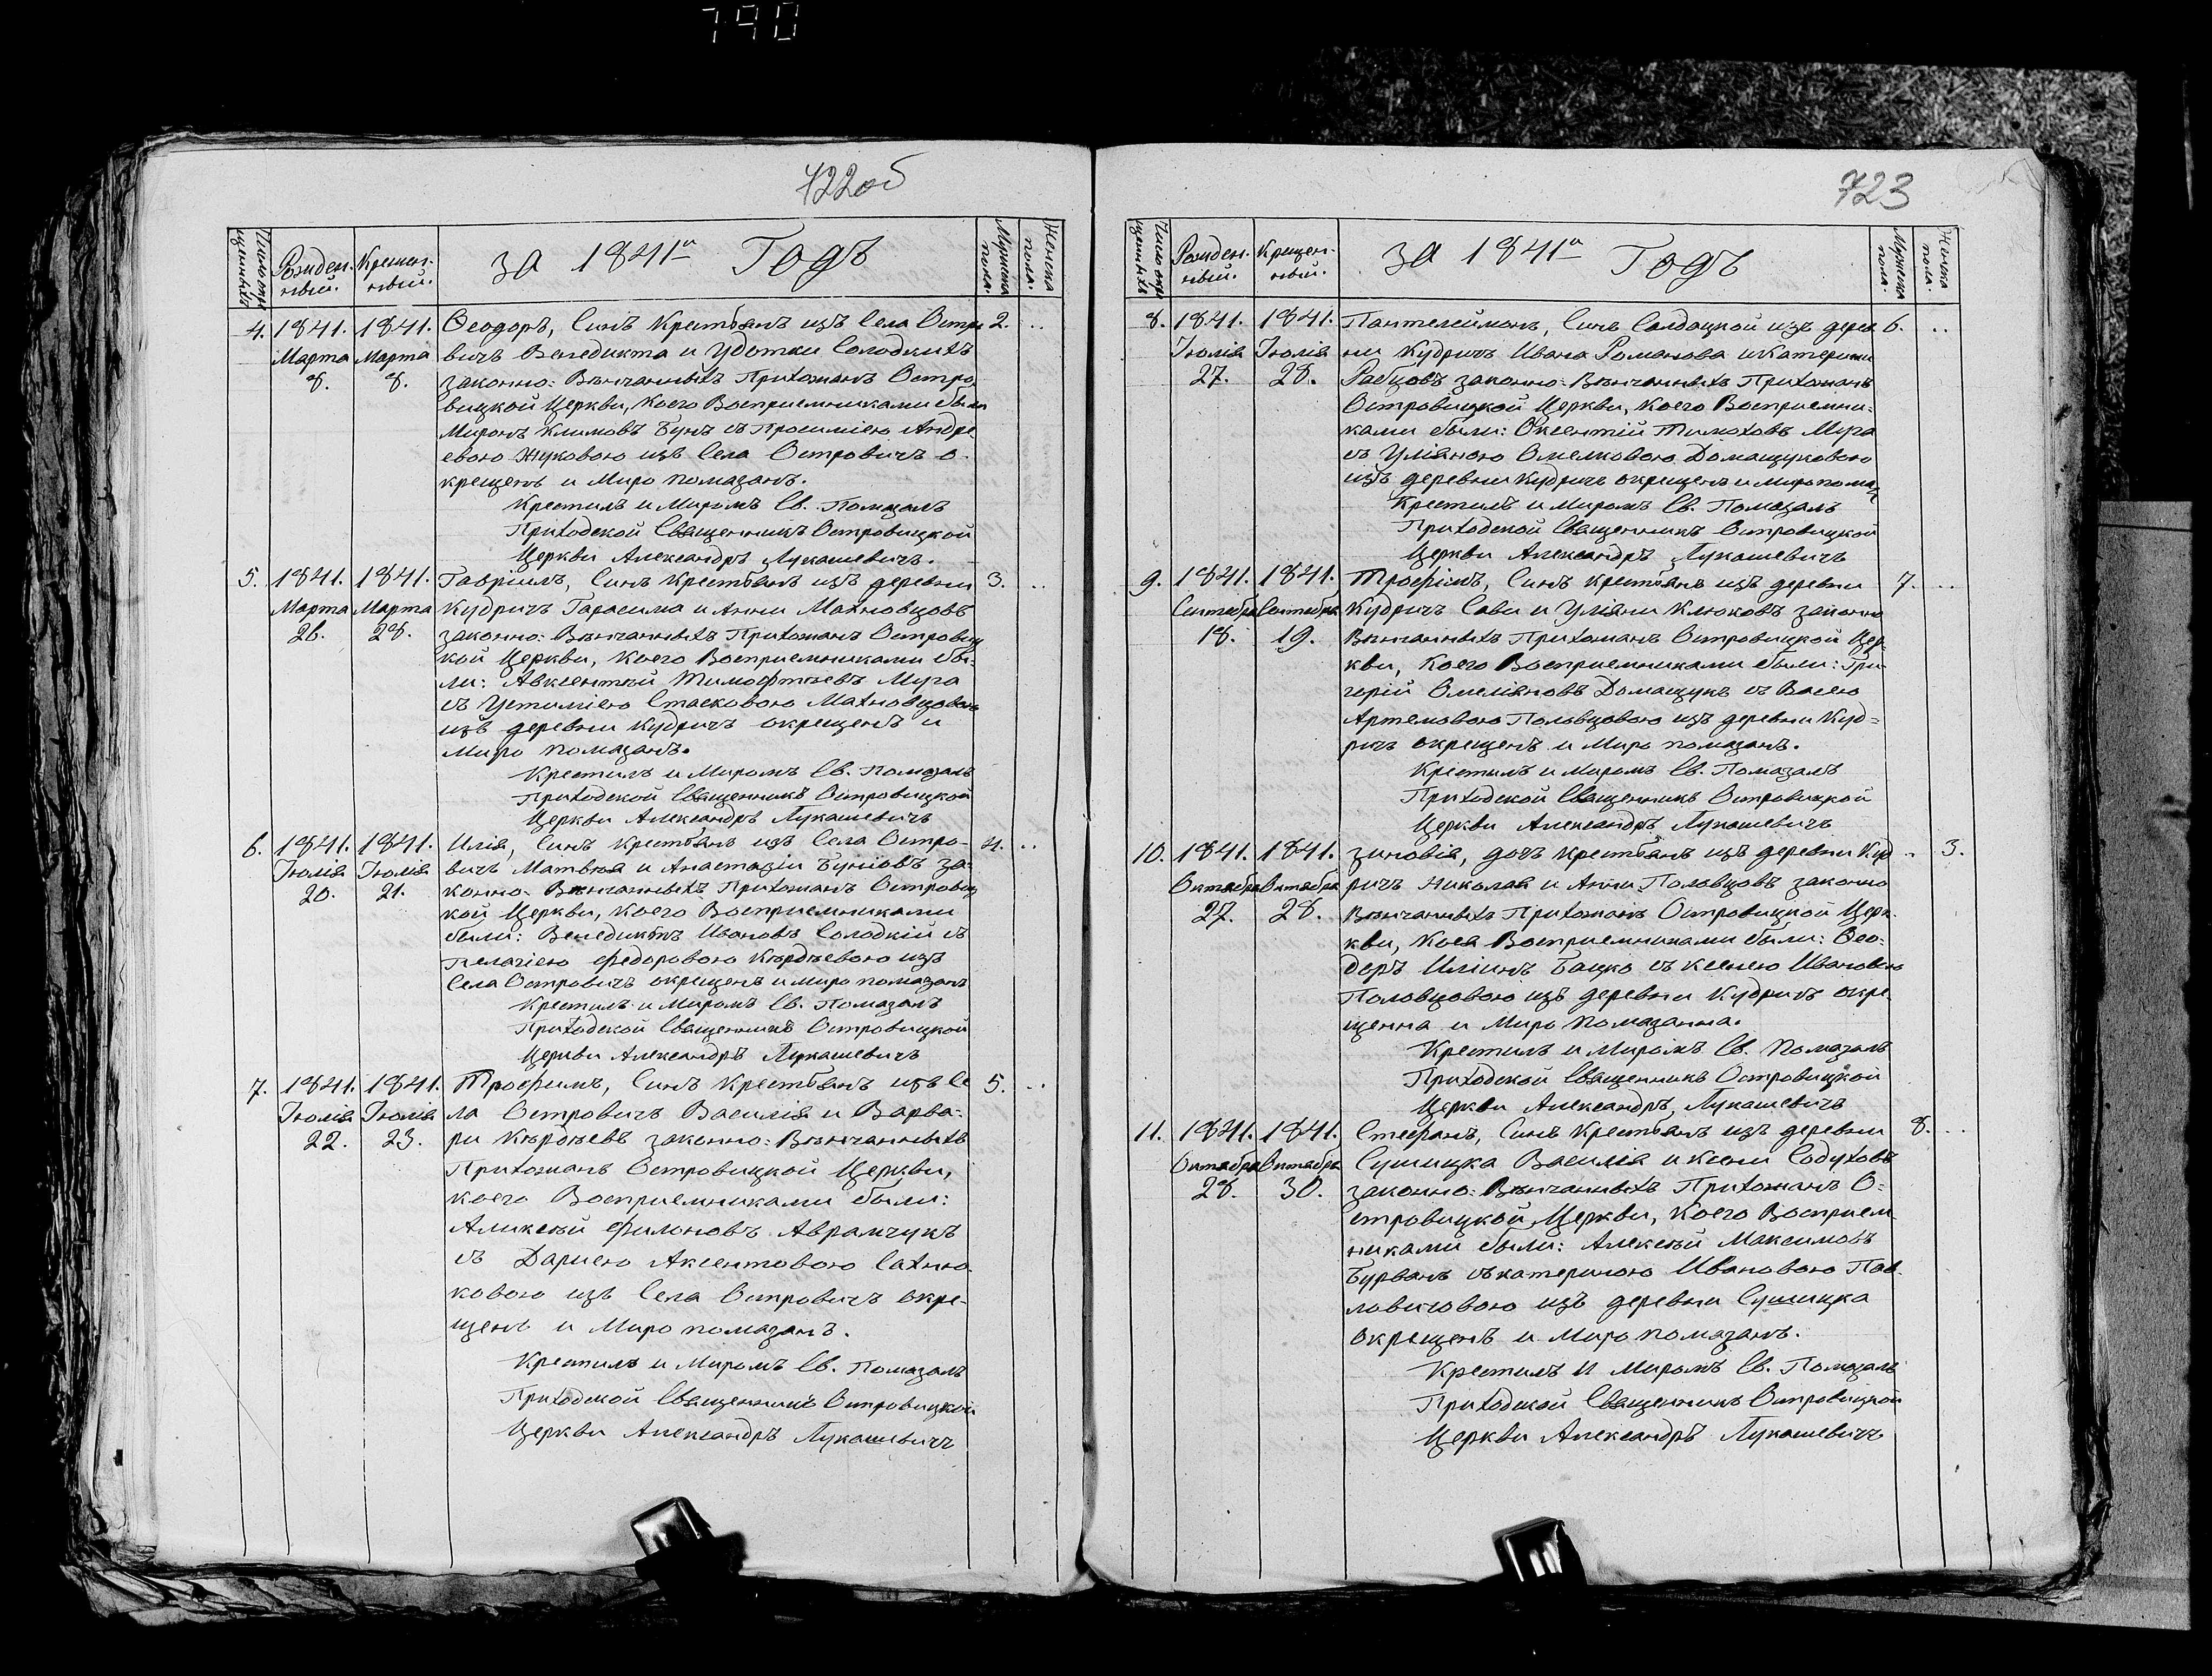 790
722об
Число окрещенныхъ
Рожден-ный.
Крещен-ный.
За 1841й Годъ
Мужеска пола.
Женска пола.
4. 1841. 1841. Ѳеодоръ, Синъ Крестьянъ изъ Села Остро 2. ..
Марта Марта вичъ Венедикта и Удотки Солодкихъ
8. 8. законно: Вѣнчанныхъ Прихожанъ Остро,
вицкой Церкви, Коего Восприемниками были
Миронъ Климовъ Бунъ съ Просимiею Андре
евою Жуковою изъ Села Островичъ о-
крещенъ и Миро помазанъ.
Крестилъ и Миромъ Св. Помазалъ
Приходской Священникъ Островицкой
Церкви Александръ Лукашевичъ.
5. 1841. 1841. Гавріилъ, Синъ Крестьянъ изъ деревни 3. ..
Марта Марта Кудричъ Гарасима и Анни Махновцовъ
26. 28. законно: Вѣнчанныхъ Прихожанъ Островиц
кой Церкви, Коего Восприемниками бы-
ли: Авксентий Тимофтѣевъ Муга
съ Устимiею Стасковою Махновцовою
изъ деревни Кудричъ окрещенъ и
Миро помазанъ.
Крестилъ и Миромъ Св. Помазалъ
Приходской Священникъ Островицкой
Церкви Александръ Лукашевичъ
6. 1841. 1841. Илія, Синъ Крестьянъ изъ Села Остро- 4. ..
Іюлія Іюлія вичъ Матвѣя и Анастазіи Буніовъ за-
20. 21. конно- Вѣнчанныхъ Прихожанъ Островиц
кой Церкви, Коего Восприемниками
были: Венедиктъ Ивановъ Солодкій съ
Пелагіею Федоровою Кѣрдѣевою изъ
Села Островичъ окрещенъ и миро помазанъ
Крестилъ и Миромъ Св. Помазалъ
Приходской Священникъ Островицкой
Церкви Александръ Лукашевичъ
7. 1841. 1841. Трофимъ, Синъ Крестьянъ изъ Се 5. ..
Іюлія Іюлія ла Островичъ Василія и Варва-
22. 23. ри Кѣрдѣевъ законно: Вѣнчанныхъ
Прихожанъ Островицкой Церкви,
коего Восприемниками были:
Алиѣкѣй Филоновъ Аврамчукъ
съ Дариею Аксентовою Сахню-
ковою изъ Села Островичъ окре-
щенъ и Миро помазанъ.
Крестилъ и Миромъ Св. Помазалъ
Приходской Священникъ Островицкой
Церкви Александръ Лукашевичъ
723
Число окрещенныхъ
Рожден-ный.
Крещен-ный.
За 1841й Годъ
Мужеска пола.
Женска пола.
8. 1841. 1841. Пантелеймонъ, Синъ Солдацкой изъ дерев 6. ..
Іюлія Іюлія ни Кудричъ Ивана Романова и Катерини
27. 28. Рабцовъ законно: Вѣнчанныхъ Прихожанъ
Островицкой Церкви, Коего Восприемни-
ками были: Оксентій Тимоховъ Муга
съ Уліяною Омелковою Домащуковою
изъ деревни Кудричъ окрещенъ и Миро помаз
Крестилъ и Миромъ Св. Помазалъ
Приходской Священникъ Островицкой
Церкви Александръ Лукашевичъ
9. 1841. 1841. Трофімъ, Синъ Крестьянъ изъ деревни 7. ..
Сентебра Сентебра Кудричъ Сави и Уліяни Клюковъ законно
18. 19. Вѣнчанныхъ Прихожанъ Островицкой Цер-
кви, Коего Восприемниками были: Гри-
горій Омеляновъ Домащукъ съ Васею
Артемовою Половцовою изъ деревни Куд-
ричъ окрещенъ и Миро помазанъ.
Крестилъ и Миромъ Св. Помазалъ
Приходской Священникъ Островицкой
Церкви Александръ Лукашевичъ
10. 1841. 1841. Зиновія, дочъ Крестьянъ изъ деревни Куд .. 3.
Октабра Октабра ричъ Николая и Анни Половцовъ законно
27. 28. Вѣнчанныхъ Прихожанъ Островицкой Церк-
кви, Коея Восприемниками были: Ѳео-
доръ Илиинъ Бацко съ Ксенею Ивановою
Половцовою изъ деревни Кудричъ окре-
щенна и Миро помазанна.
Крестилъ и Миромъ Св. Помазалъ
Приходской Священникъ Островицкой
Церкви Александръ Лукашевичъ
11. 1841. 1841. Стефанъ, Синъ Крестьянъ изъ деревни 8. ..
Октабра Октабра Сушицка Василія и Ксени Содуховъ
28. 30. законно: Вѣнчанныхъ Прихожанъ О-
стровицкой Церкви, Коего Восприем-
никами были: Алексѣй Максимовъ
Бурванъ съ Катериною Ивановою Пав-
ловичовою изъ деревни Сушицка
окрещенъ и Миро помазанъ.
Крестилъ И Миромъ Св. Помазалъ
Приходской Священникъ Островицкой
Церкви Александръ Лукашевичъ